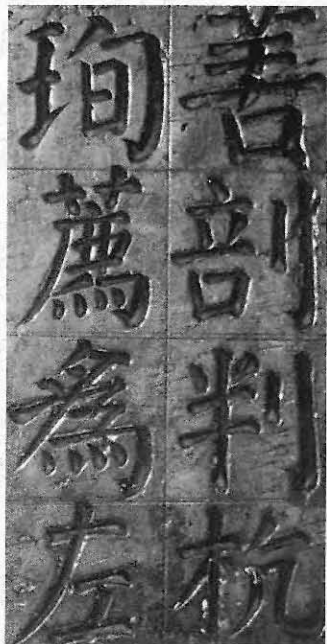 善剖判杭
珣薦爲左